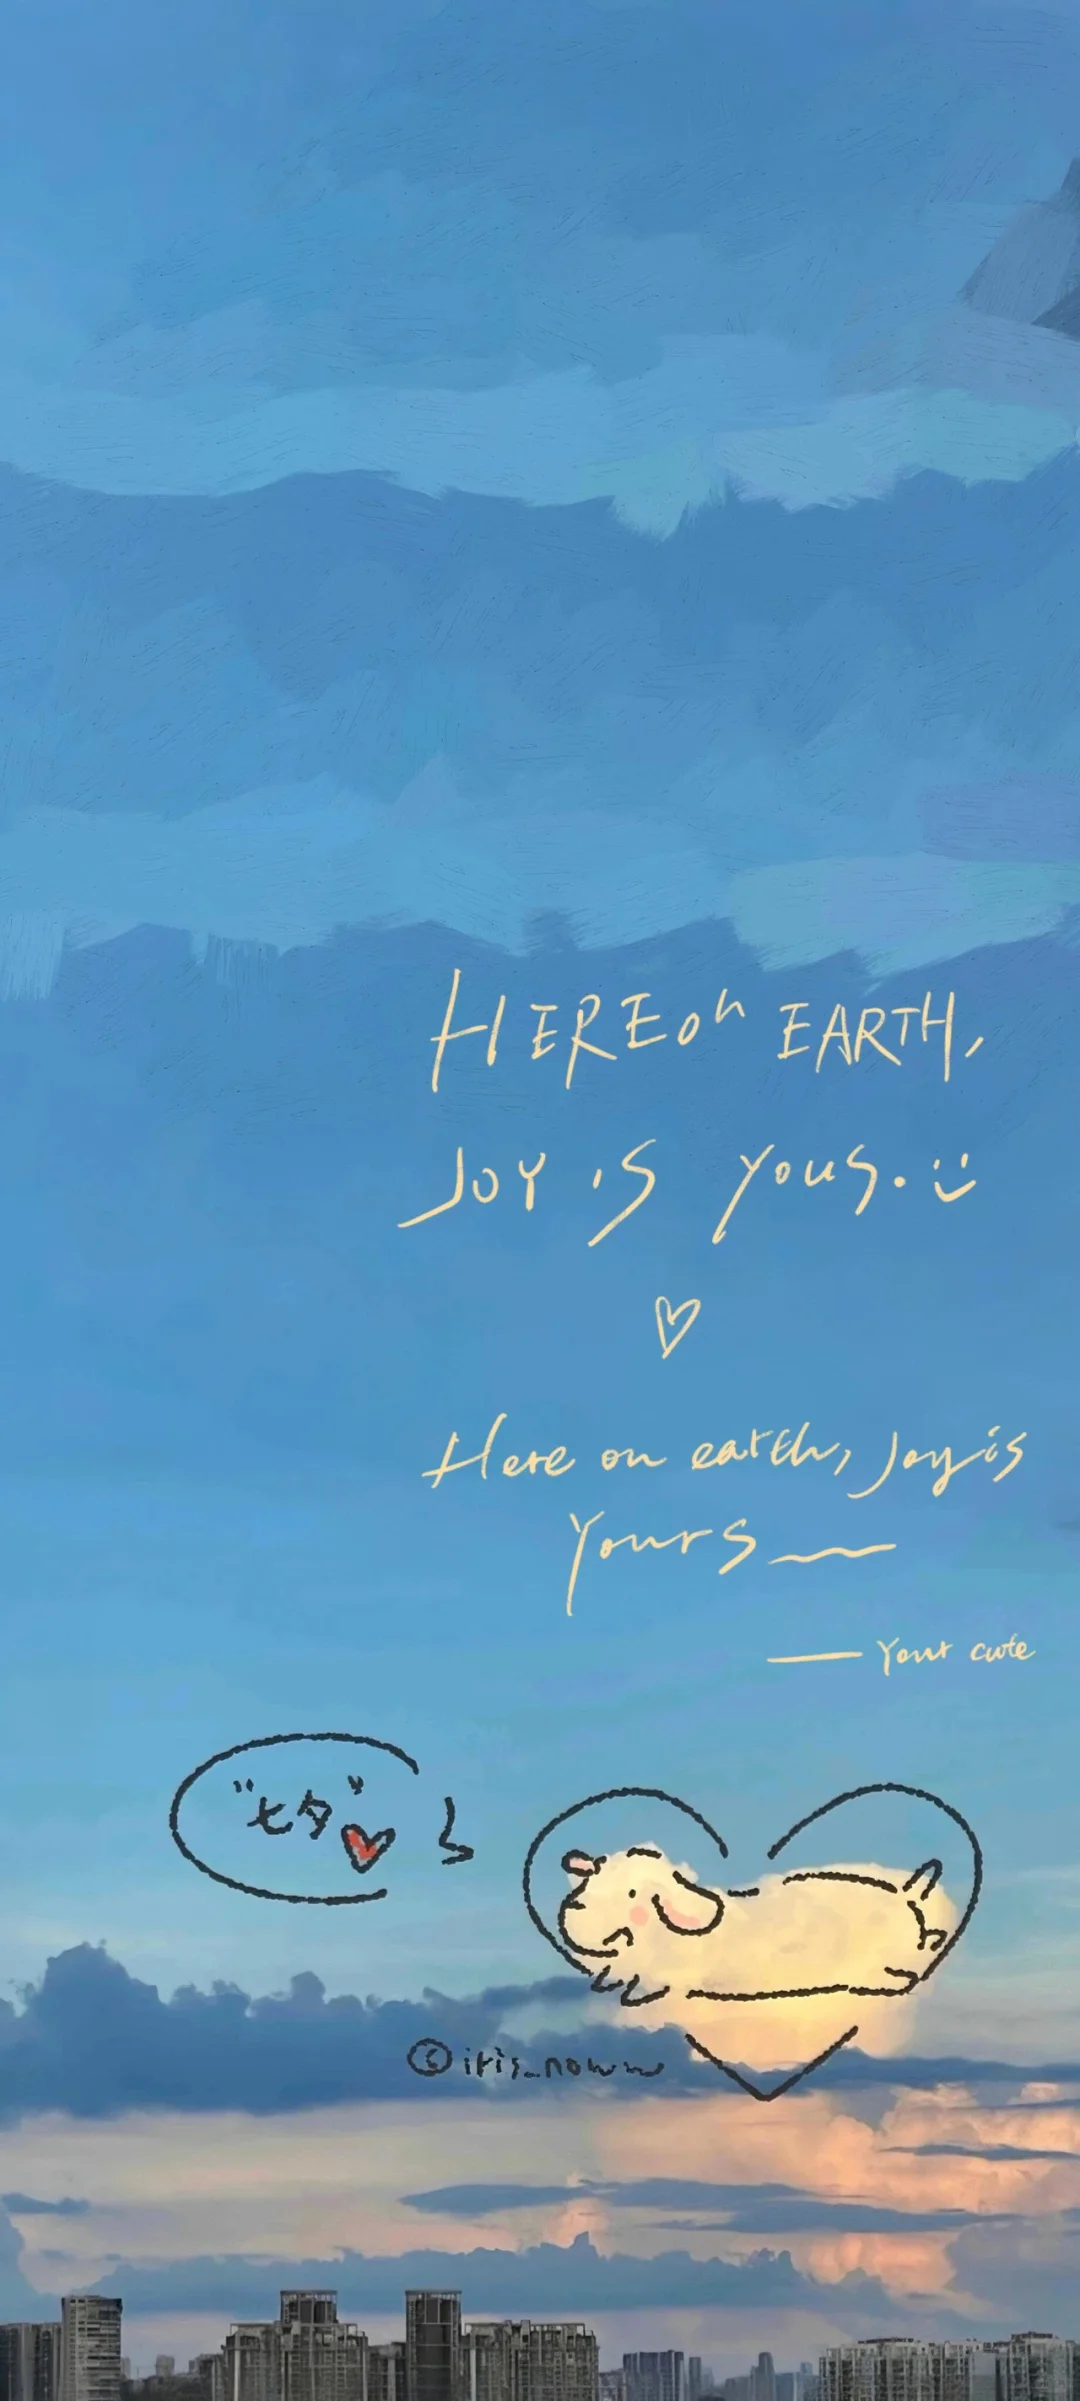 HERE on EARTH,
JOY is yous.
Here on earth, Joy is
Yours
— Your cute
"七夕"
©iris_noww